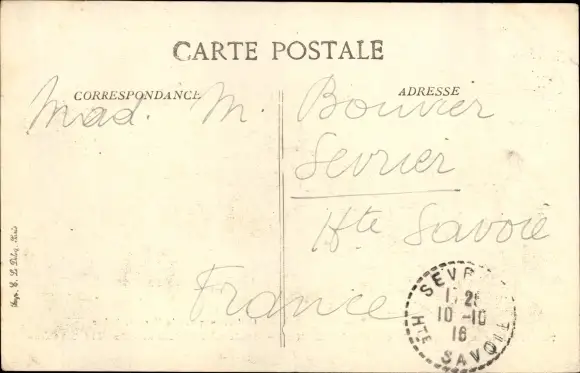 CARTE POSTALE
CORRESPONDANCE
ADRESSE
Mad. M. Bouvier
Sevrier
Hte Savoie
France
SEVR
10-10
16
HTE SAVOIE